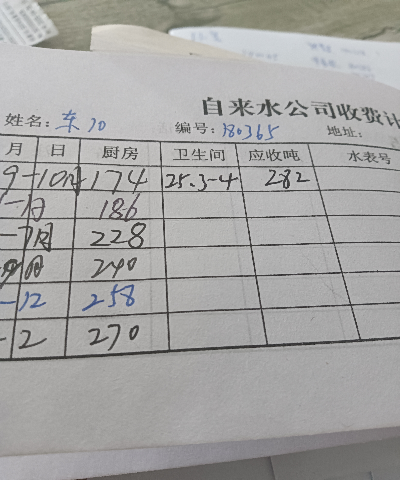 自来水公司收费计
姓名: 东10 编号: 180365 地址:
月 日 厨房 卫生间 应收吨 水表号
9-10月 174 25.3-4 282
-1月 186
-7月 228
月 240
-12 258
-2 270